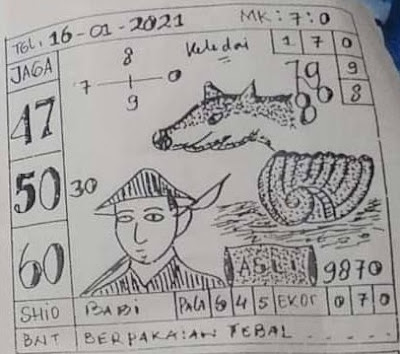 TGL: 16-01-2021 MK: 7:0
JAGA 8 Keledai 1 7 0
7 0 79 9
9 80 8
47
50 30
60 ASLI 9870
SHIO BABI PALA 6 4 5 EKOR 0 7 0
BNT BERPAKAIAN TEBAL . . . . .